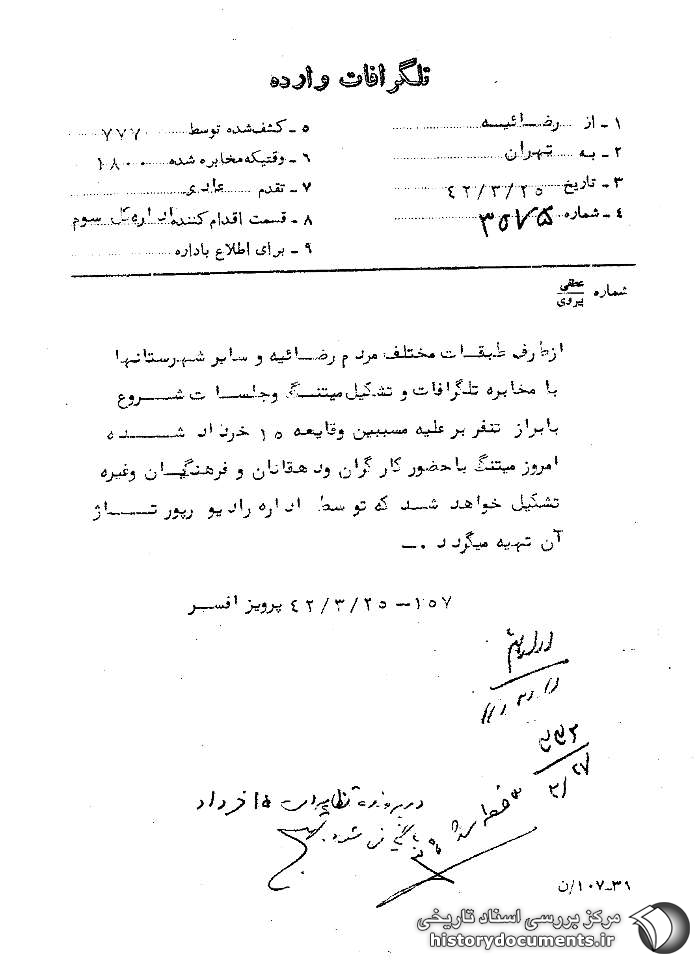 تلگرافات وارده
۱ - از رضائیه
۲ - به تهران
۳ - تاریخ ۴۲/۳/۲۵
۴ - شماره ۳۵۷۵
۵ - کشف شده توسط ۷۷۷
۶ - وقتیکه مخابره شده ۱۸۰۰
۷ - تقدم عادی
۸ - قسمت اقدام کننده اداره کل سوم
۹ - برای اطلاع باداره
شماره عطفی پیروی
ازطرف طبقات مختلف مردم رضائیه و سایر شهرستانها
با مخابره تلگرافات و تشکیل میتنگ وجلسات شروع
بابراز تنفر بر علیه مسببین وقایعه ۱۵ خرداد شده
امروز میتنگ باحضور کارگران ودهقانان و فرهنگیان وغیره
تشکیل خواهد شد که توسط اداره رادیو رپورتاژ
آن تهیه میگردد .-
۱۵۷ - ۴۲/۳/۲۵ پرویز افسر
۳/۲۷
در پرونده تظاهرات ۱۵ خرداد
بایگانی شود
۳۹-۱۰۷/ن
مرکز بررسی اسناد تاریخی
historydocuments.ir